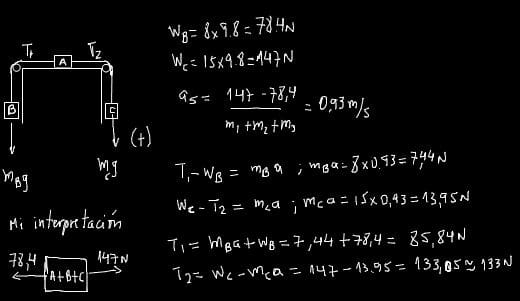 W_B = 8x9.8 = 78.4N
W_C = 15x9.8 = 147N
T_1 T_2
A
a_s = 147 - 78,4 / m_1 + m_2 + m_3 = 0,93 m/s
B C
(+)
m_B g m_C g
T_1 - W_B = m_B a ; m_B a = 8x0.93 = 7,44N
W_C - T_2 = m_C a ; m_C a = 15x0,93 = 13,95N
Mi interpretación
78,4 147N
A+B+C
T_1 = m_B a + W_B = 7,44 + 78,4 = 85,84N
T_2 = W_C - m_C a = 147 - 13.95 = 133,05 ≈ 133N